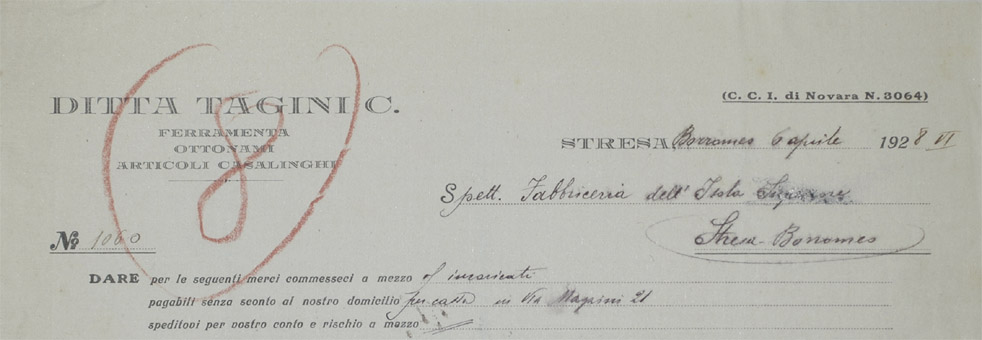 DITTA TAGINI C.
FERRAMENTA
OTTONAMI
ARTICOLI CASALINGHI
8
(C. C. I. di Novara N. 3064)
STRESA Borromeo 6 aprile 1928 VI
Spett. Fabbriceria dell' Isola
Stresa-Borromeo
No 1060
DARE per le seguenti merci commesseci a mezzo incaricati
pagabili senza sconto al nostro domicilio per cassa in Via Mazzini 21
speditovi per vostro conto e rischio a mezzo